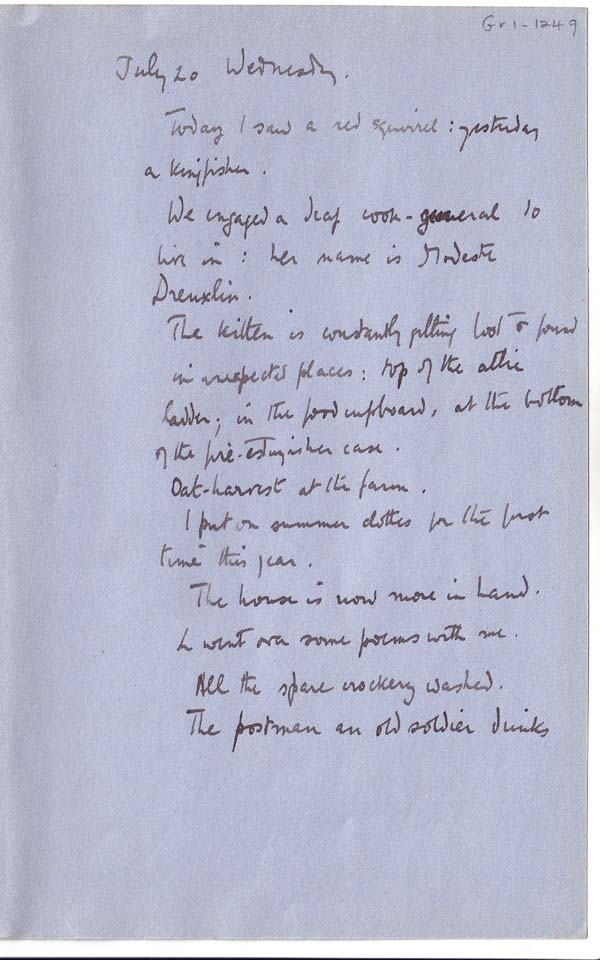 Gr1-1249
July 20 Wednesday.
Today I saw a red squirrel: yesterday
a kingfisher.
We engaged a deaf cook-general to
live in: her name is Modeste
Dreuxlin.
The kitten is constantly getting lost & found
in unexpected places: top of the attic
ladder; in the food cupboard, at the bottom
of the fire-estinguisher case.
Oat-harvest at the farm.
I put on summer clothes for the first
time this year.
The house is now more in hand.
L went over some poems with me.
All the spare crockery washed.
The postman an old soldier drinks